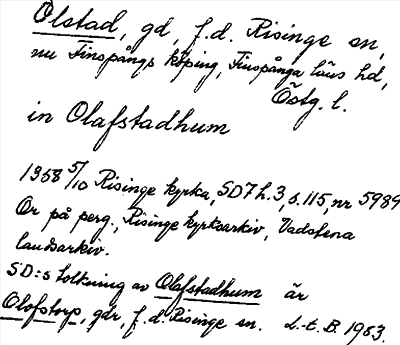 Olstad, gd, f.d. Risinge sn,
nu Finspångs köping, Finspånga läns hd,
Östg. l.
in Olafstadhum
1358 5/10 Risinge kyrka, SD7 h.3, s.115, nr 5989
Or på perg., Risinge kyrkoarkiv, Vadstena
landsarkiv.
SD:s tolkning av Olafstadhum är
Olofstorp, gdr, f.d. Risinge sn. L.-E. B. 1983.